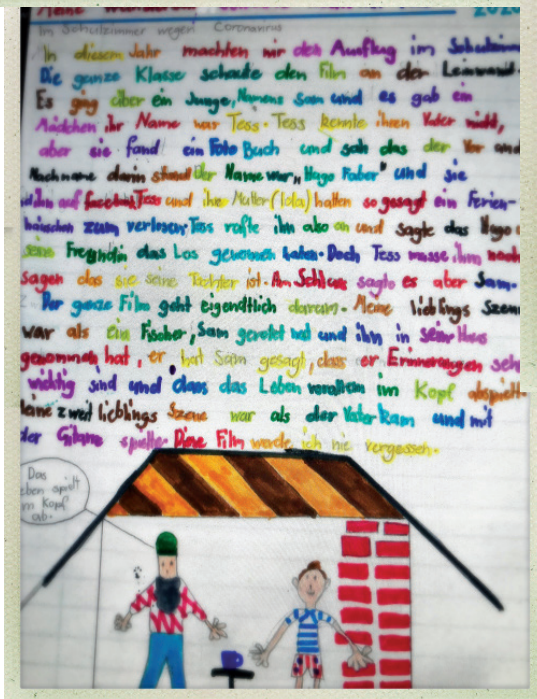 Meine
2020
Im Schulzimmer wegen Coronavirus
In diesem Jahr machten wir den Ausflug im Schulzimm
Die ganze Klasse schaute den Film an der Leinwand.
Es ging über ein Junge, Namens Sam und es gab ein
Mädchen ihr Name war Tess. Tess kennte ihren Vater nicht,
aber sie fand ein Foto Buch und sah das der Vor und
Nachname darin stand Der Name war „Hugo Faber" und sie
ihn auf facebook Tess und ihre Mutter (lola) hatten so gesagt ein Ferien-
häuschen zum verlosen Tess rufte ihn also an und sagte das Hugo u
seine Freundin das Los gewonnen haben. Doch Tess musse ihm noch
sagen das sie seine Tochter ist. Am Schluss sagte es aber Sam.
Der ganze Film geht eigendtlich darum. Meine lieblings Szene
war als ein Fischer, Sam geretet hat und ihn in sein Haus
genommen hat, er hat Sam gesagt, dass er Erinnerungen seh
wichtig sind und dass das Leben vorallem im Kopf abspielt.
Meine zweit lieblings Szene war als der Vater kam und mit
der Gitare spielte. Diese Film werde ich nie vergessen.
Das
eben spielt
im Kopf
ab.